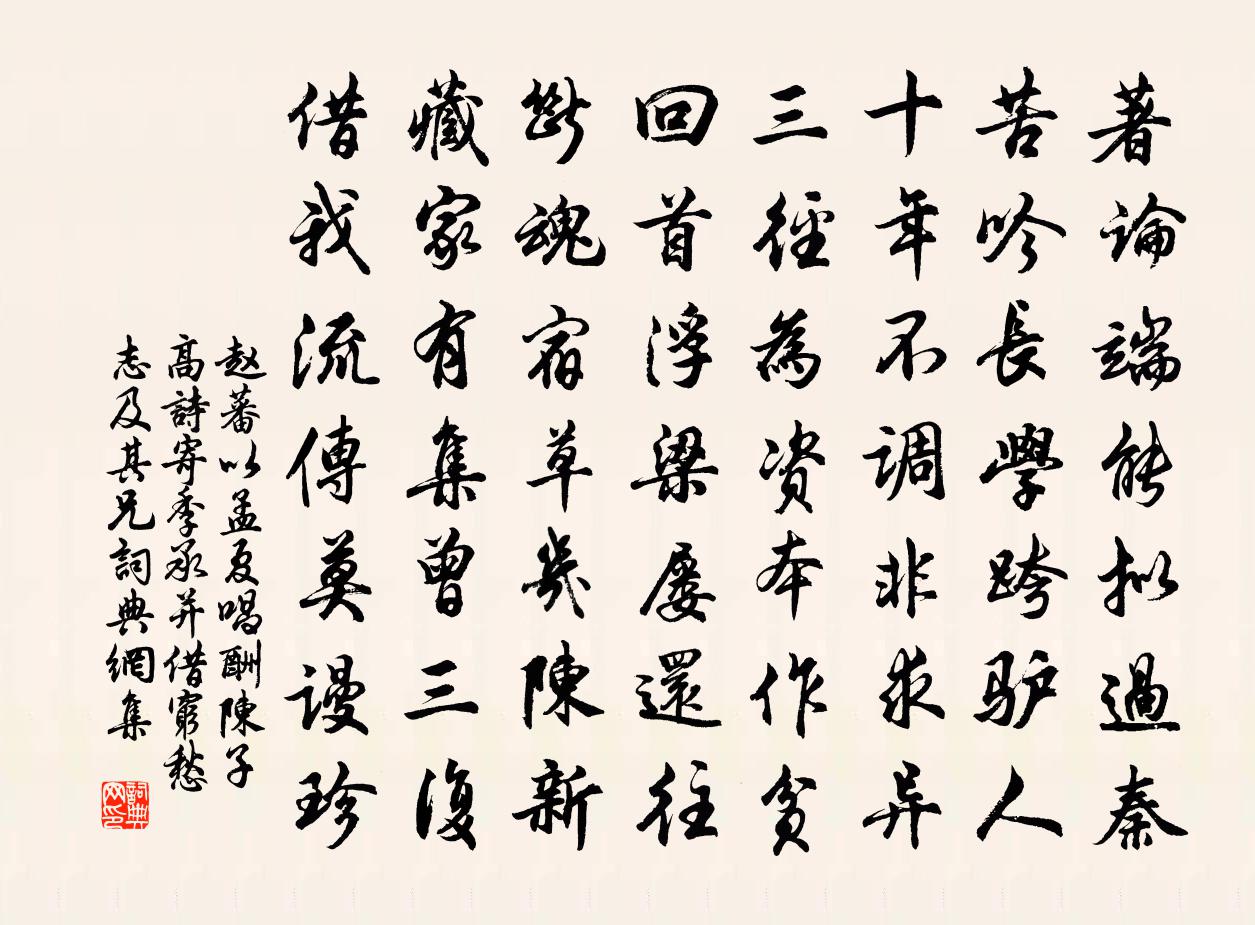 著論端能拟過秦
苦吟長學跨驴人
十年不調非求异
三徑為资本作貧
回首浮梁屡還往
斷魂宿草幾陳新
藏家有集曾三復
借我流傳莫謾珍
赵蕃以孟夏唱酬陳子
高詩寄季承并借窮愁
志及其兄詞典網集
詞典
网印